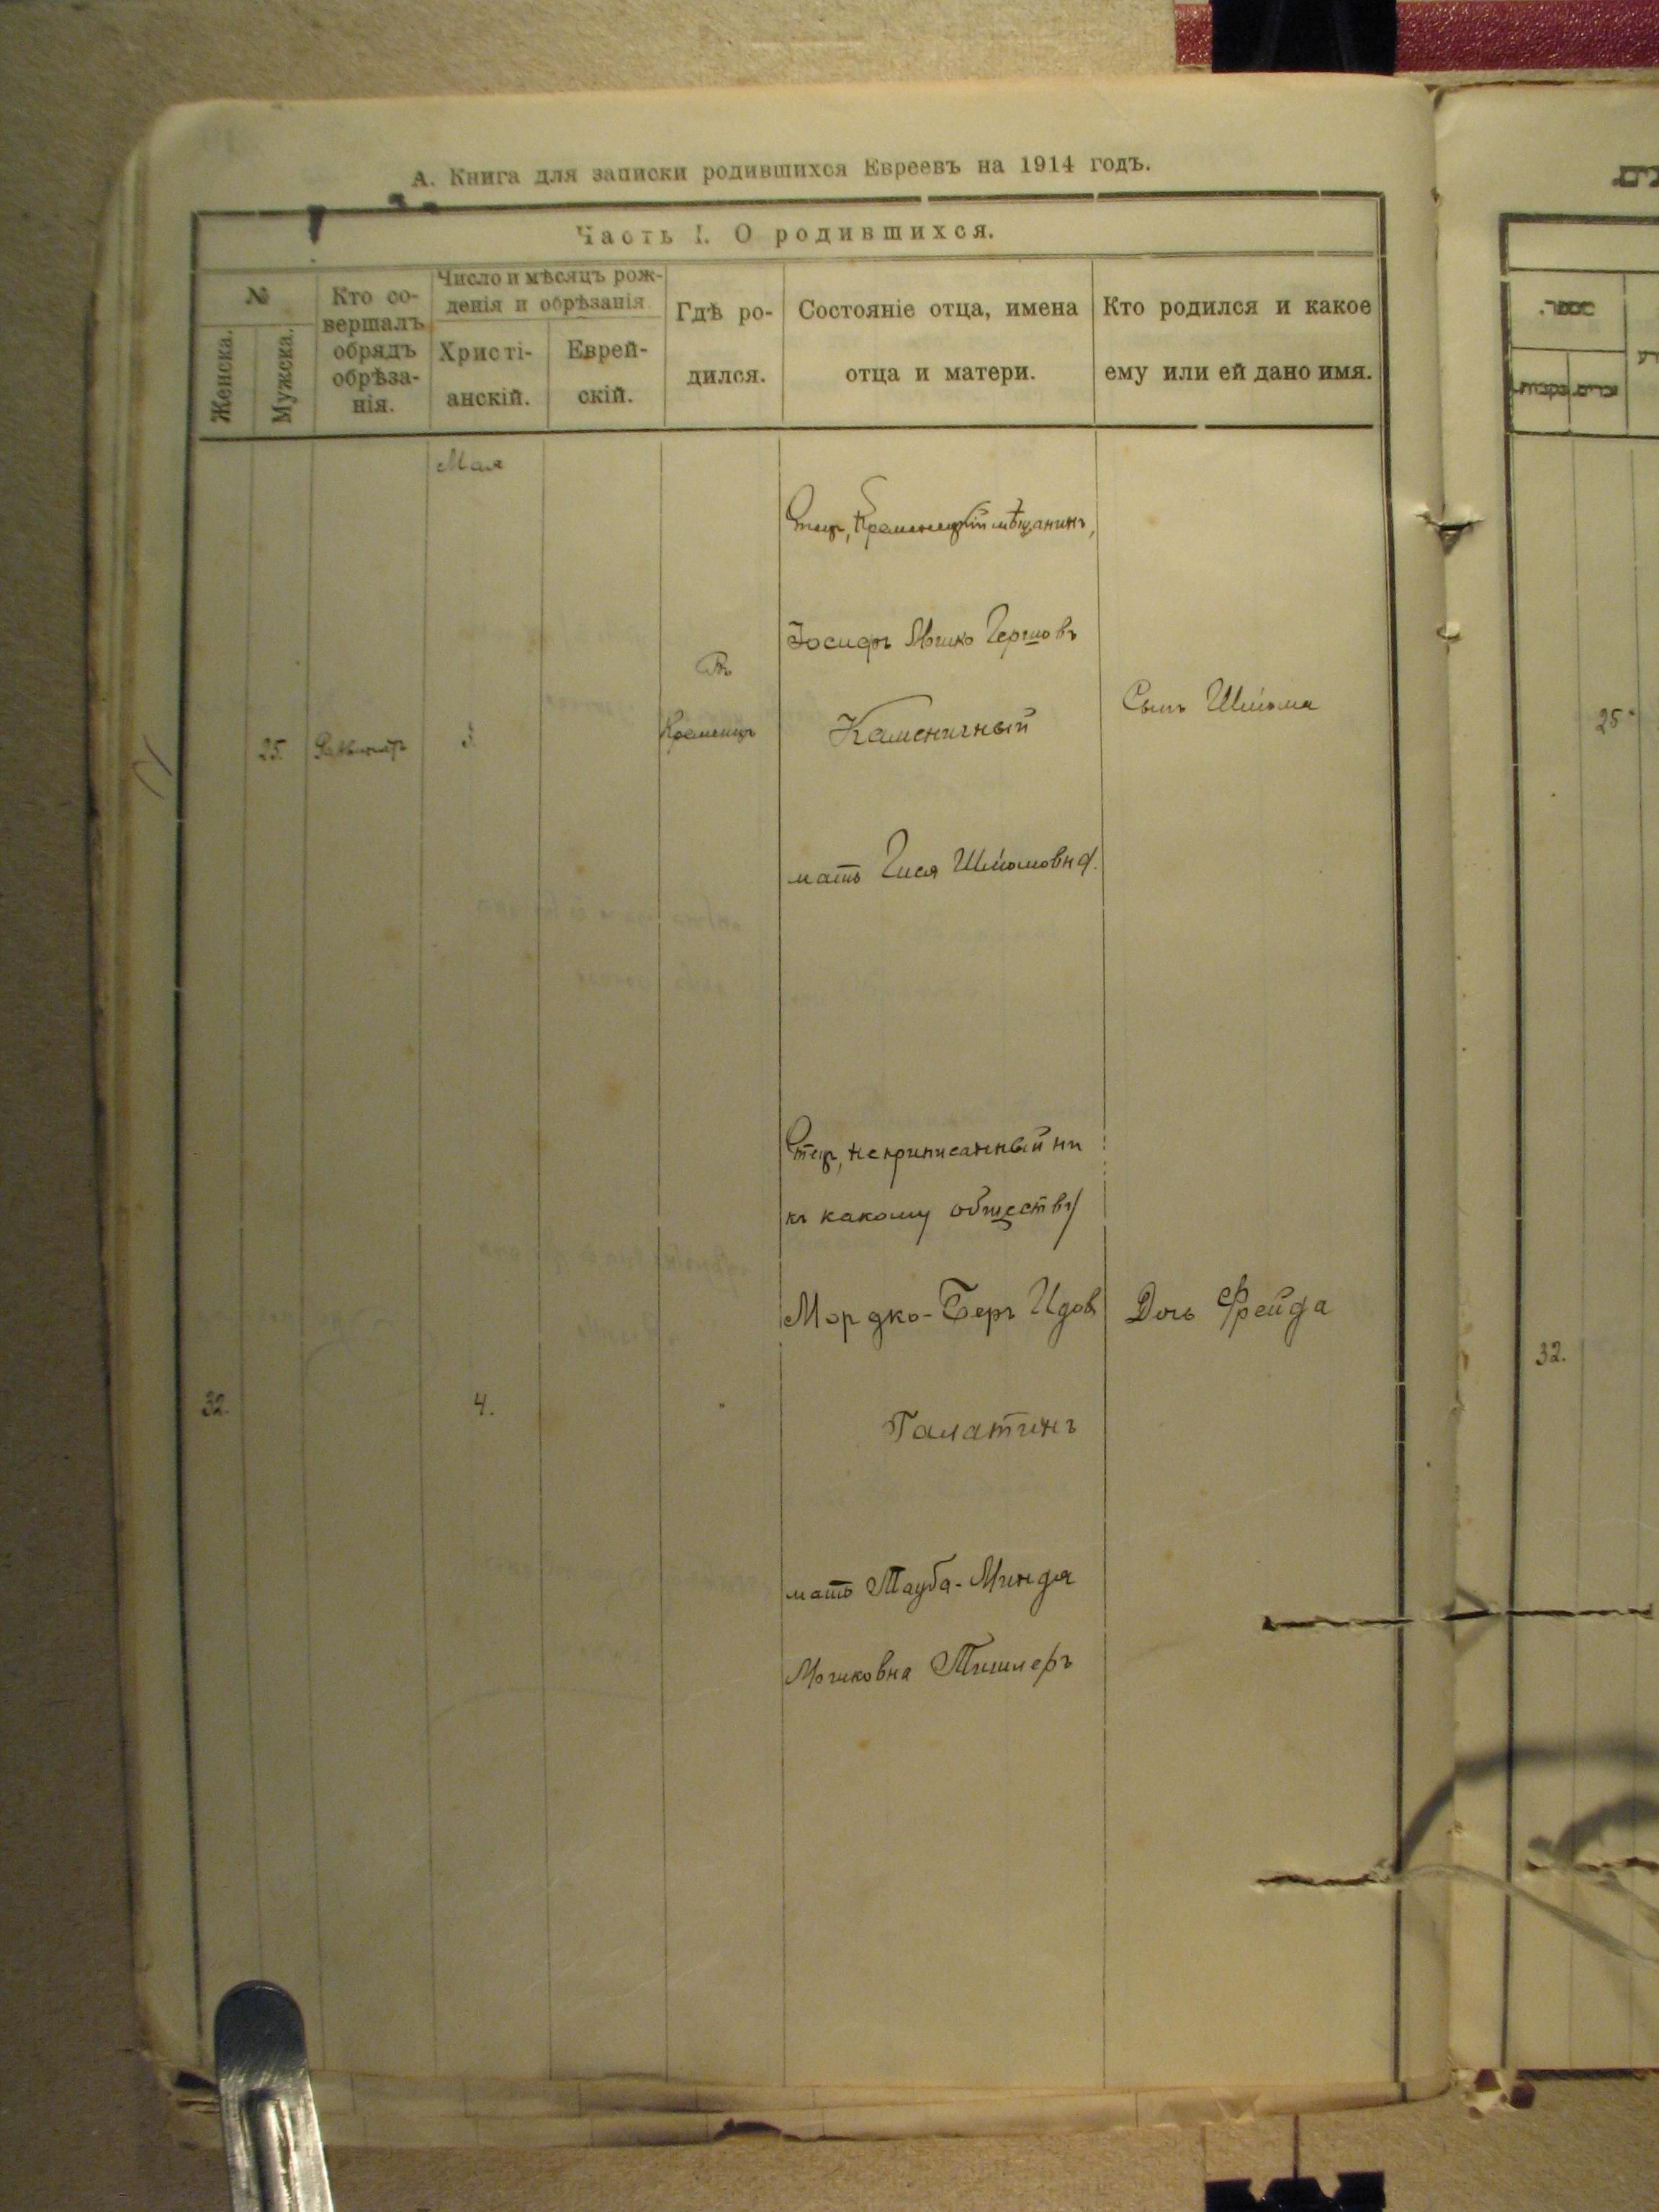 А. Книга для записки родившихся Евреевъ на 1914 годъ.
Часть I. О родившихся.
№
Женска.
Мужска.
Кто со-
вершалъ
обрядъ
обрѣза-
нія.
Число и мѣсяцъ рож-
денія и обрѣзанія
Христі-
анскій.
Еврей-
скій.
Гдѣ ро-
дился.
Состояніе отца, имена
отца и матери.
Кто родился и какое
ему или ей дано имя.
Мая
25.
Въ
Кременцѣ
Отецъ, Кременецкій мѣщанинъ,
Іосифъ Мошко Гершовъ
Каменичный
мать Гися Шліомовна.
Сынъ Шліома
25
32.
4.
"
Отецъ, неприписанный ни
къ какому обществу
Мордко-Беръ Идов
Галатинъ
мать Тауба-Минда
Мошковна Тишлеръ
Дочь Фрейда
32.